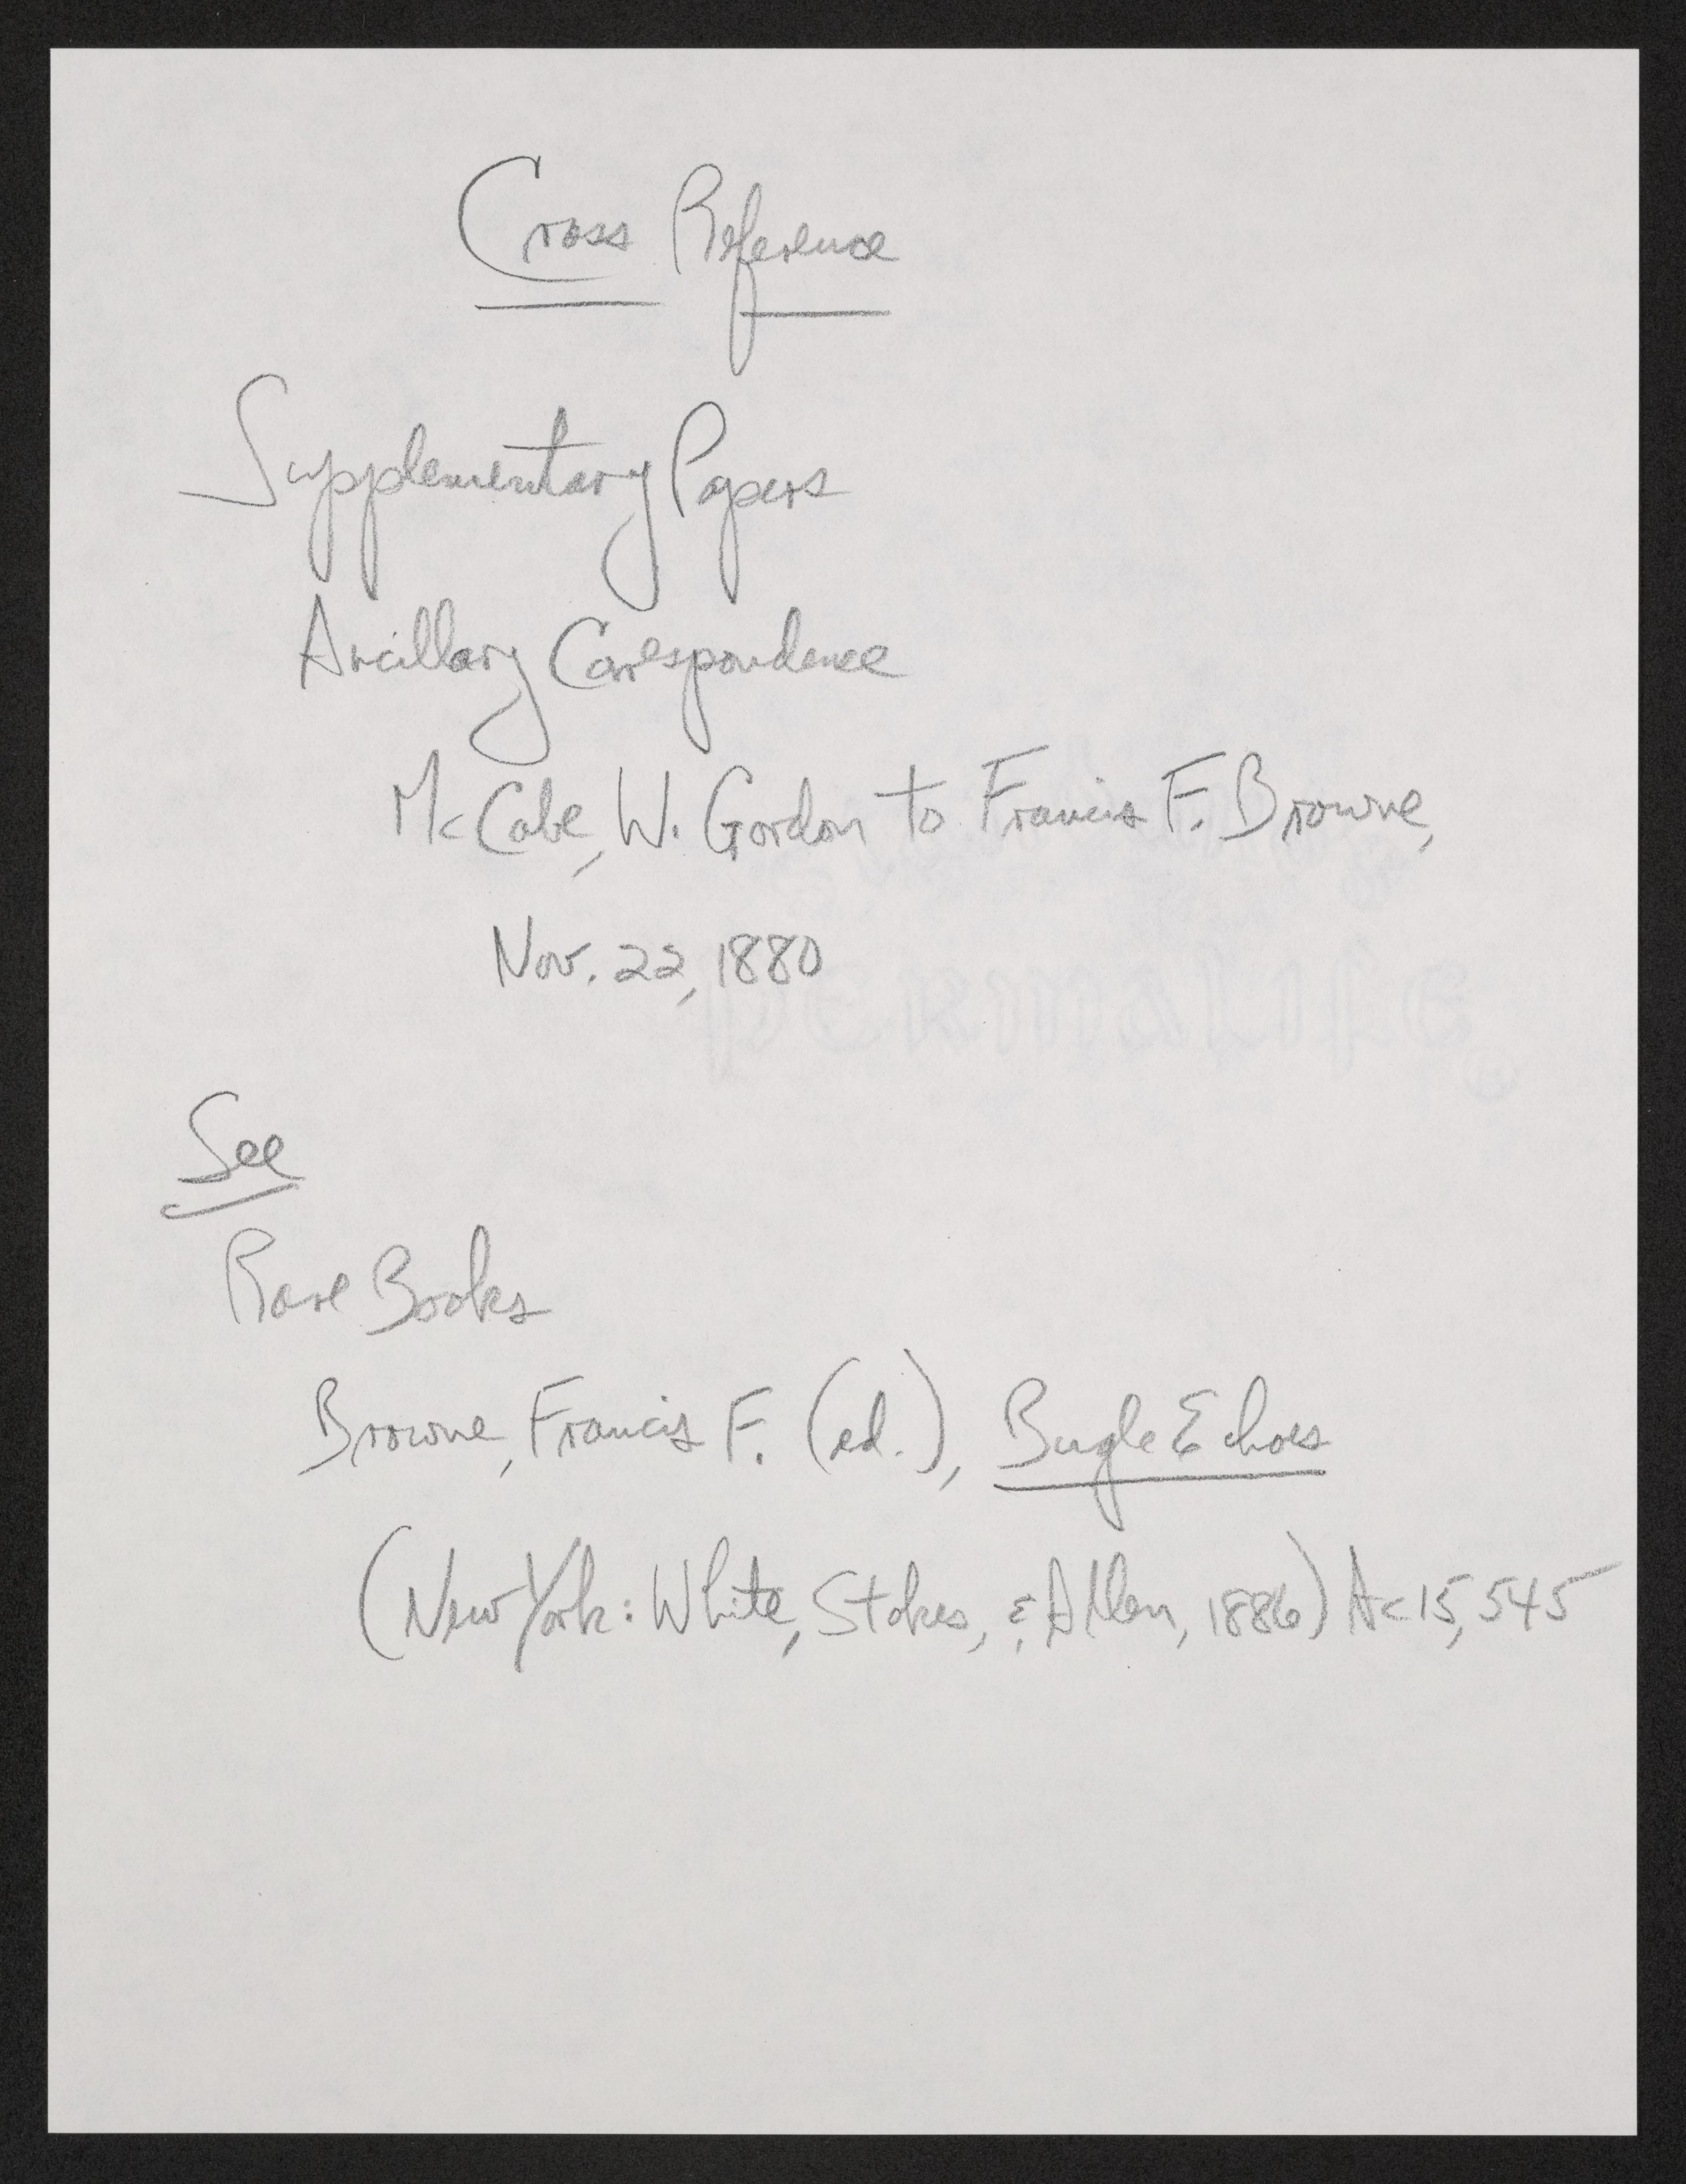 Cross Reference
Supplementary Papers
Ancillary Correspondence
McCabe, W. Gordon to Francis F. Browne,
Nov. 22, 1880
See
Rare Books
Browne, Francis F. (ed.), Bugle Echoes
(New York: White, Stokes, & Allen, 1886) Ac 15,545
permalife®